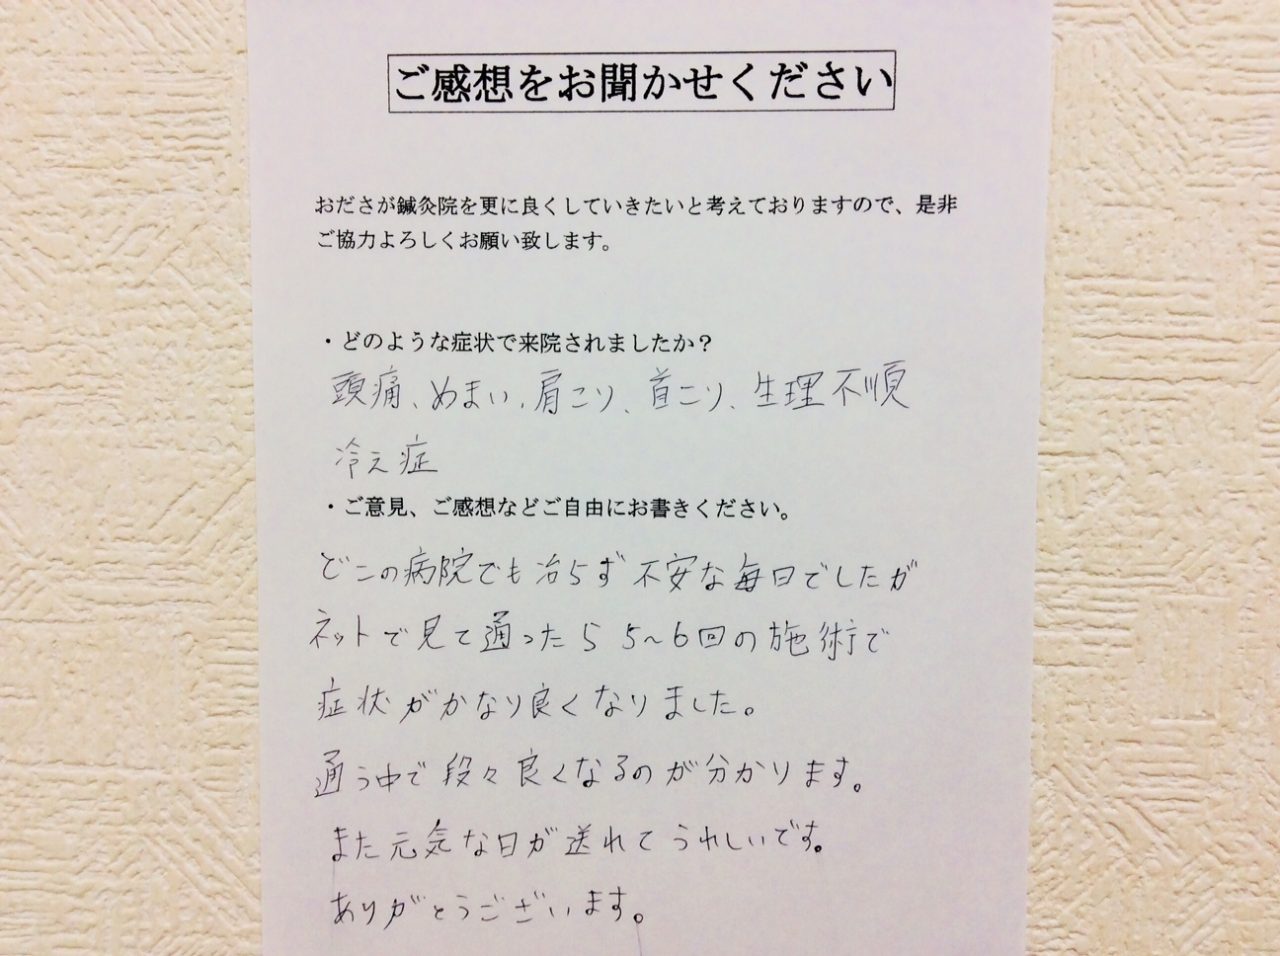 ご感想をお聞かせください
おださが鍼灸院を更に良くしていきたいと考えておりますので、是非
ご協力よろしくお願い致します。
・どのような症状で来院されましたか？
頭痛、めまい、肩こり、首こり、生理不順
冷え症
・ご意見、ご感想などご自由にお書きください。
どこの病院でも治らず不安な毎日でしたが
ネットで見て通ったら5~6回の施術で
症状がかなり良くなりました。
通う中で段々良くなるのが分かります。
また元気な日が送れてうれしいです。
ありがとうございます。